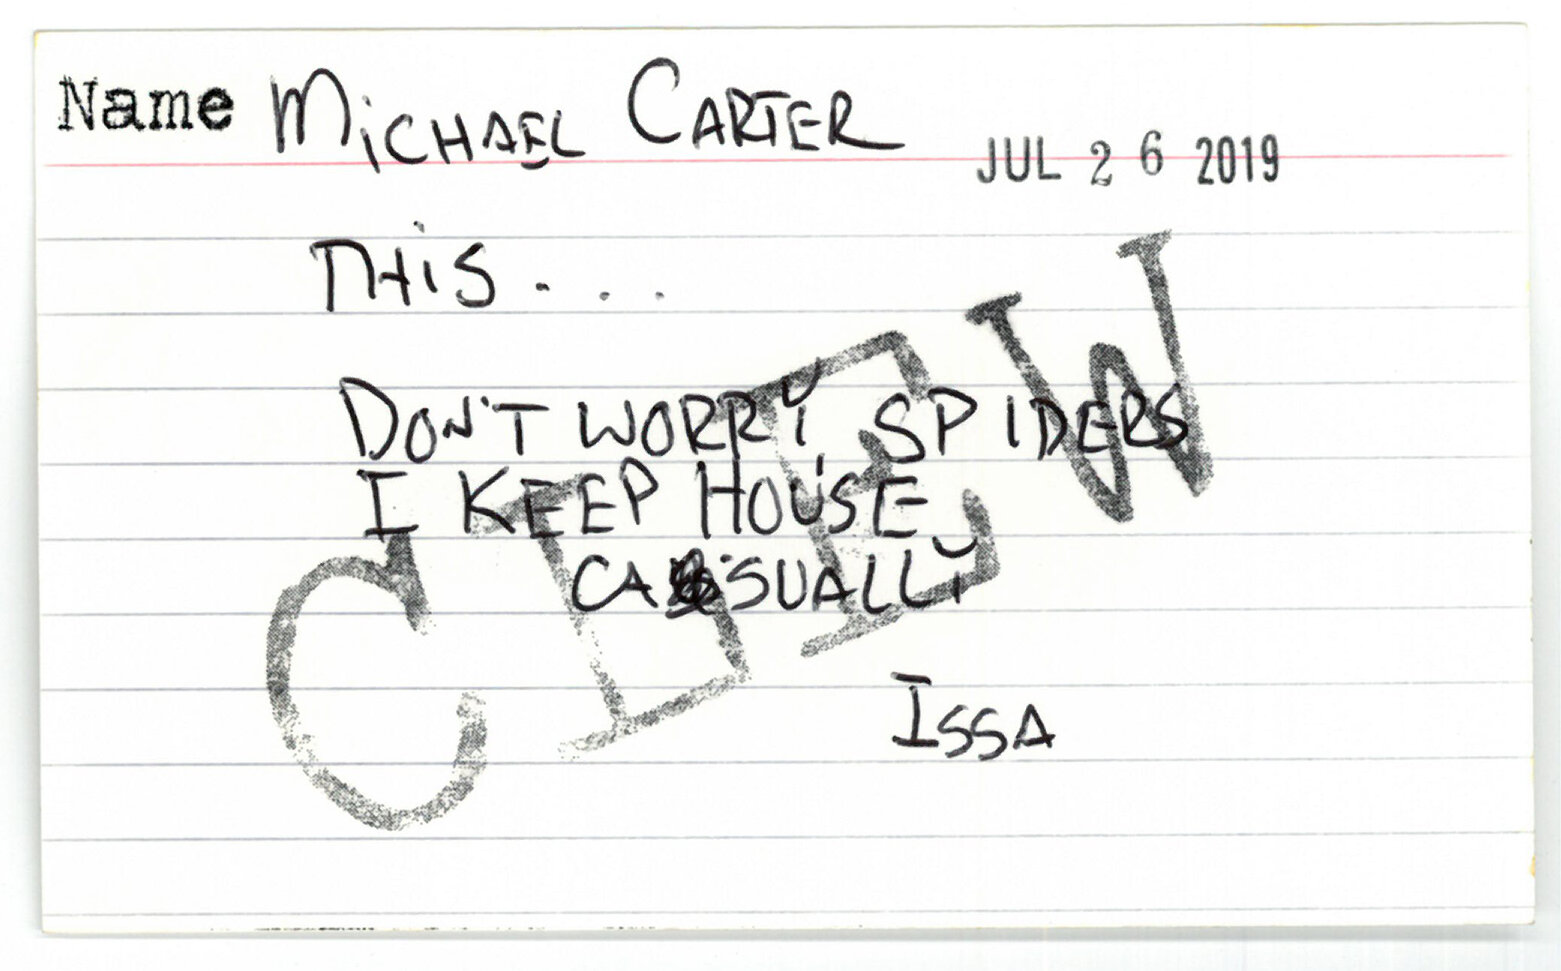 Name MiCHAEL CARTER
JUL 26 2019
THiS....
DON'T WORRY, SPIDERS
I KEEP HOUSE
CASUALLY
ISSA
CLEW